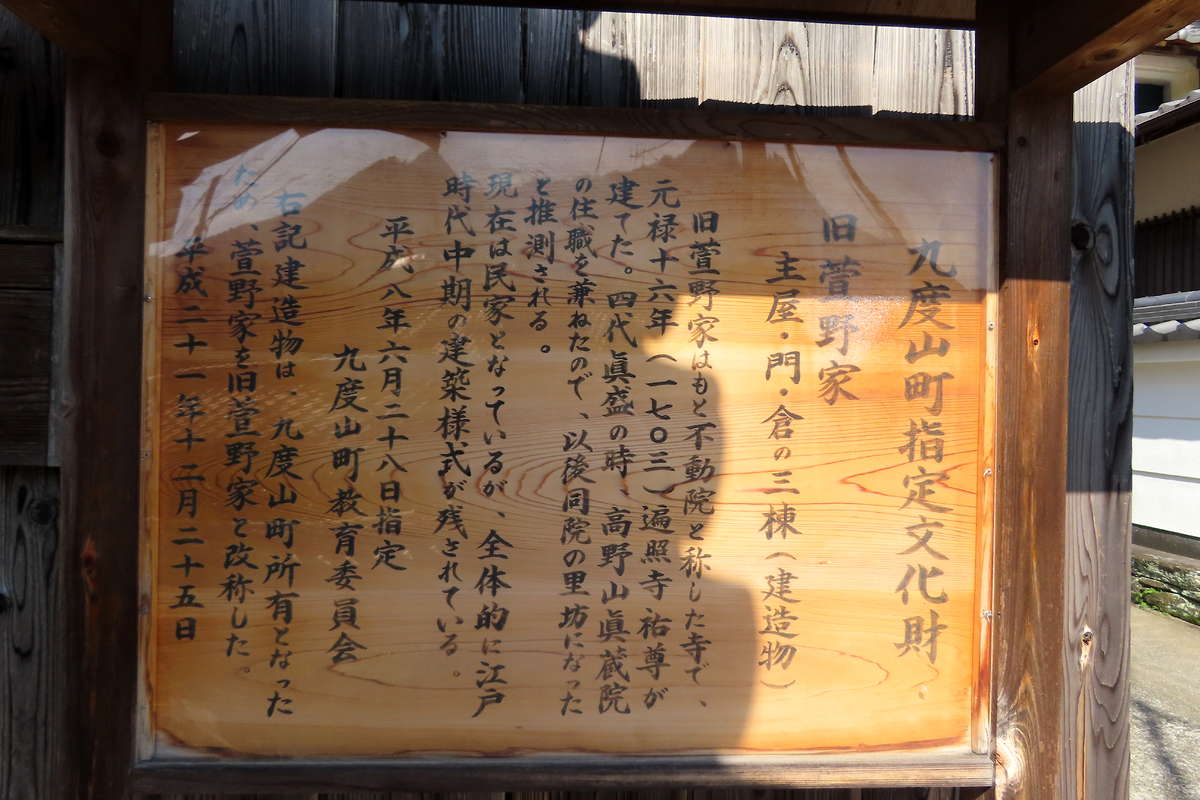 九度山町指定文化財
旧萱野家
主屋・門・倉の三棟(建造物)
旧萱野家はもと不動院と称した寺で、
元禄十六年(一七〇三)遍照寺祐尊が
建てた。四代眞盛の時、高野山眞蔵院
の住職を兼ねたので、以後同院の里坊になった
と推測される。
現在は民家となっているが、全体的に江戸
時代中期の建築様式が残されている。
平成八年六月二十八日指定
九度山町教育委員会
右記建造物は、九度山町所有となった
ため、萱野家を旧萱野家と改称した。
平成二十一年十二月二十五日